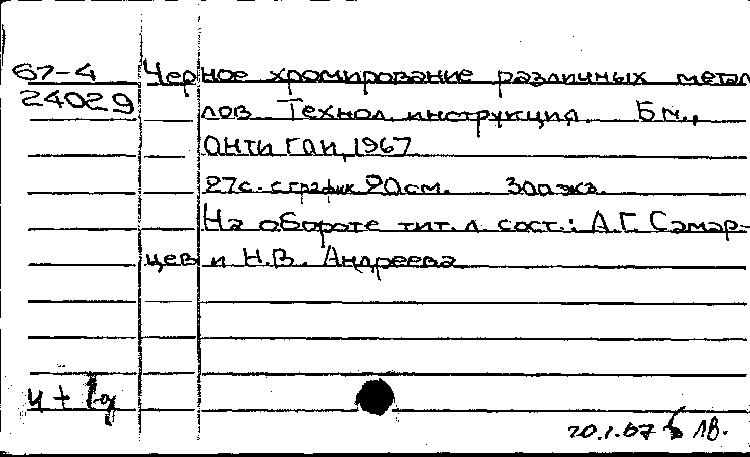 67-4 Черное хромирование различных метал
24029 лов Технол. инструкция. Б м.,
ОНТИ ГОИ, 1967
27с. с график 20см. 300экз.
На обороте тит. л. сост.: А.Г. Самар-
цев и Н.В. Андреева
ч +
20.1.67 ЛВ.